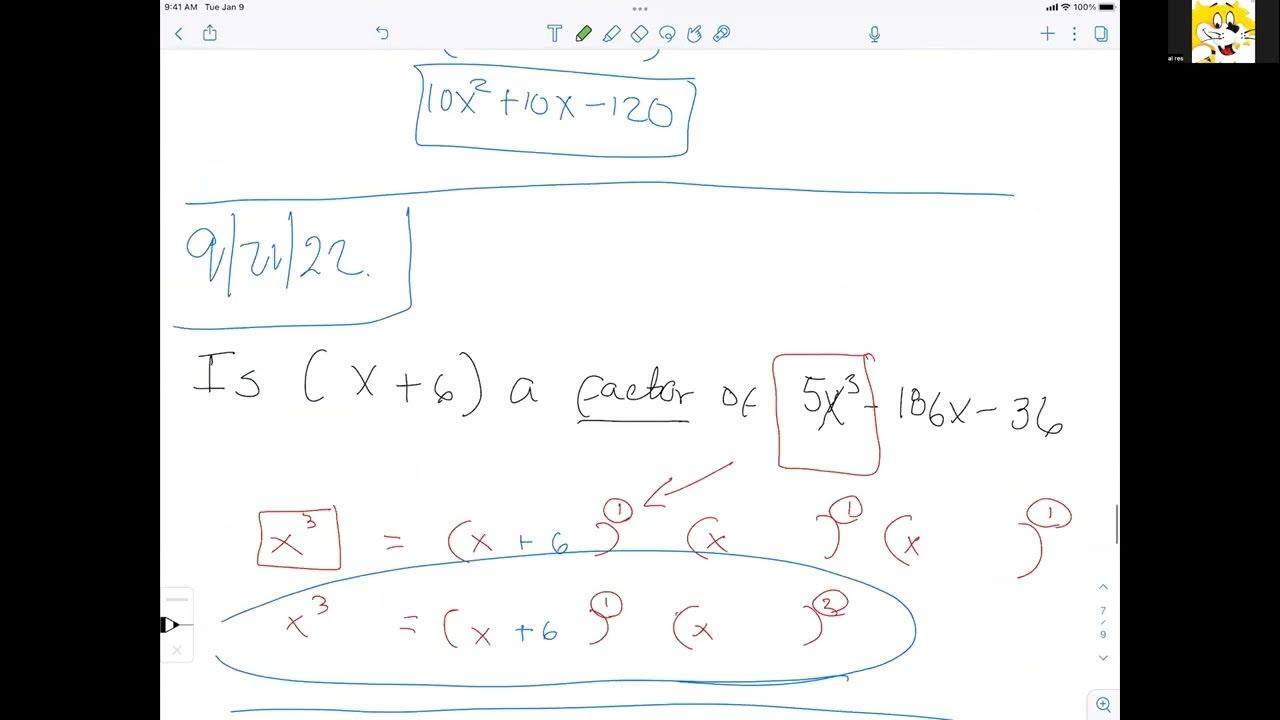 9:41 AM Tue Jan 9
100%
al res
10x² + 10x - 120
9/21/22.
Is (x + 6) a factor of 5x³ - 186x - 36
x³ = (x + 6)¹ (x )¹ (x )¹
x³ = (x + 6)¹ (x )²
7/9